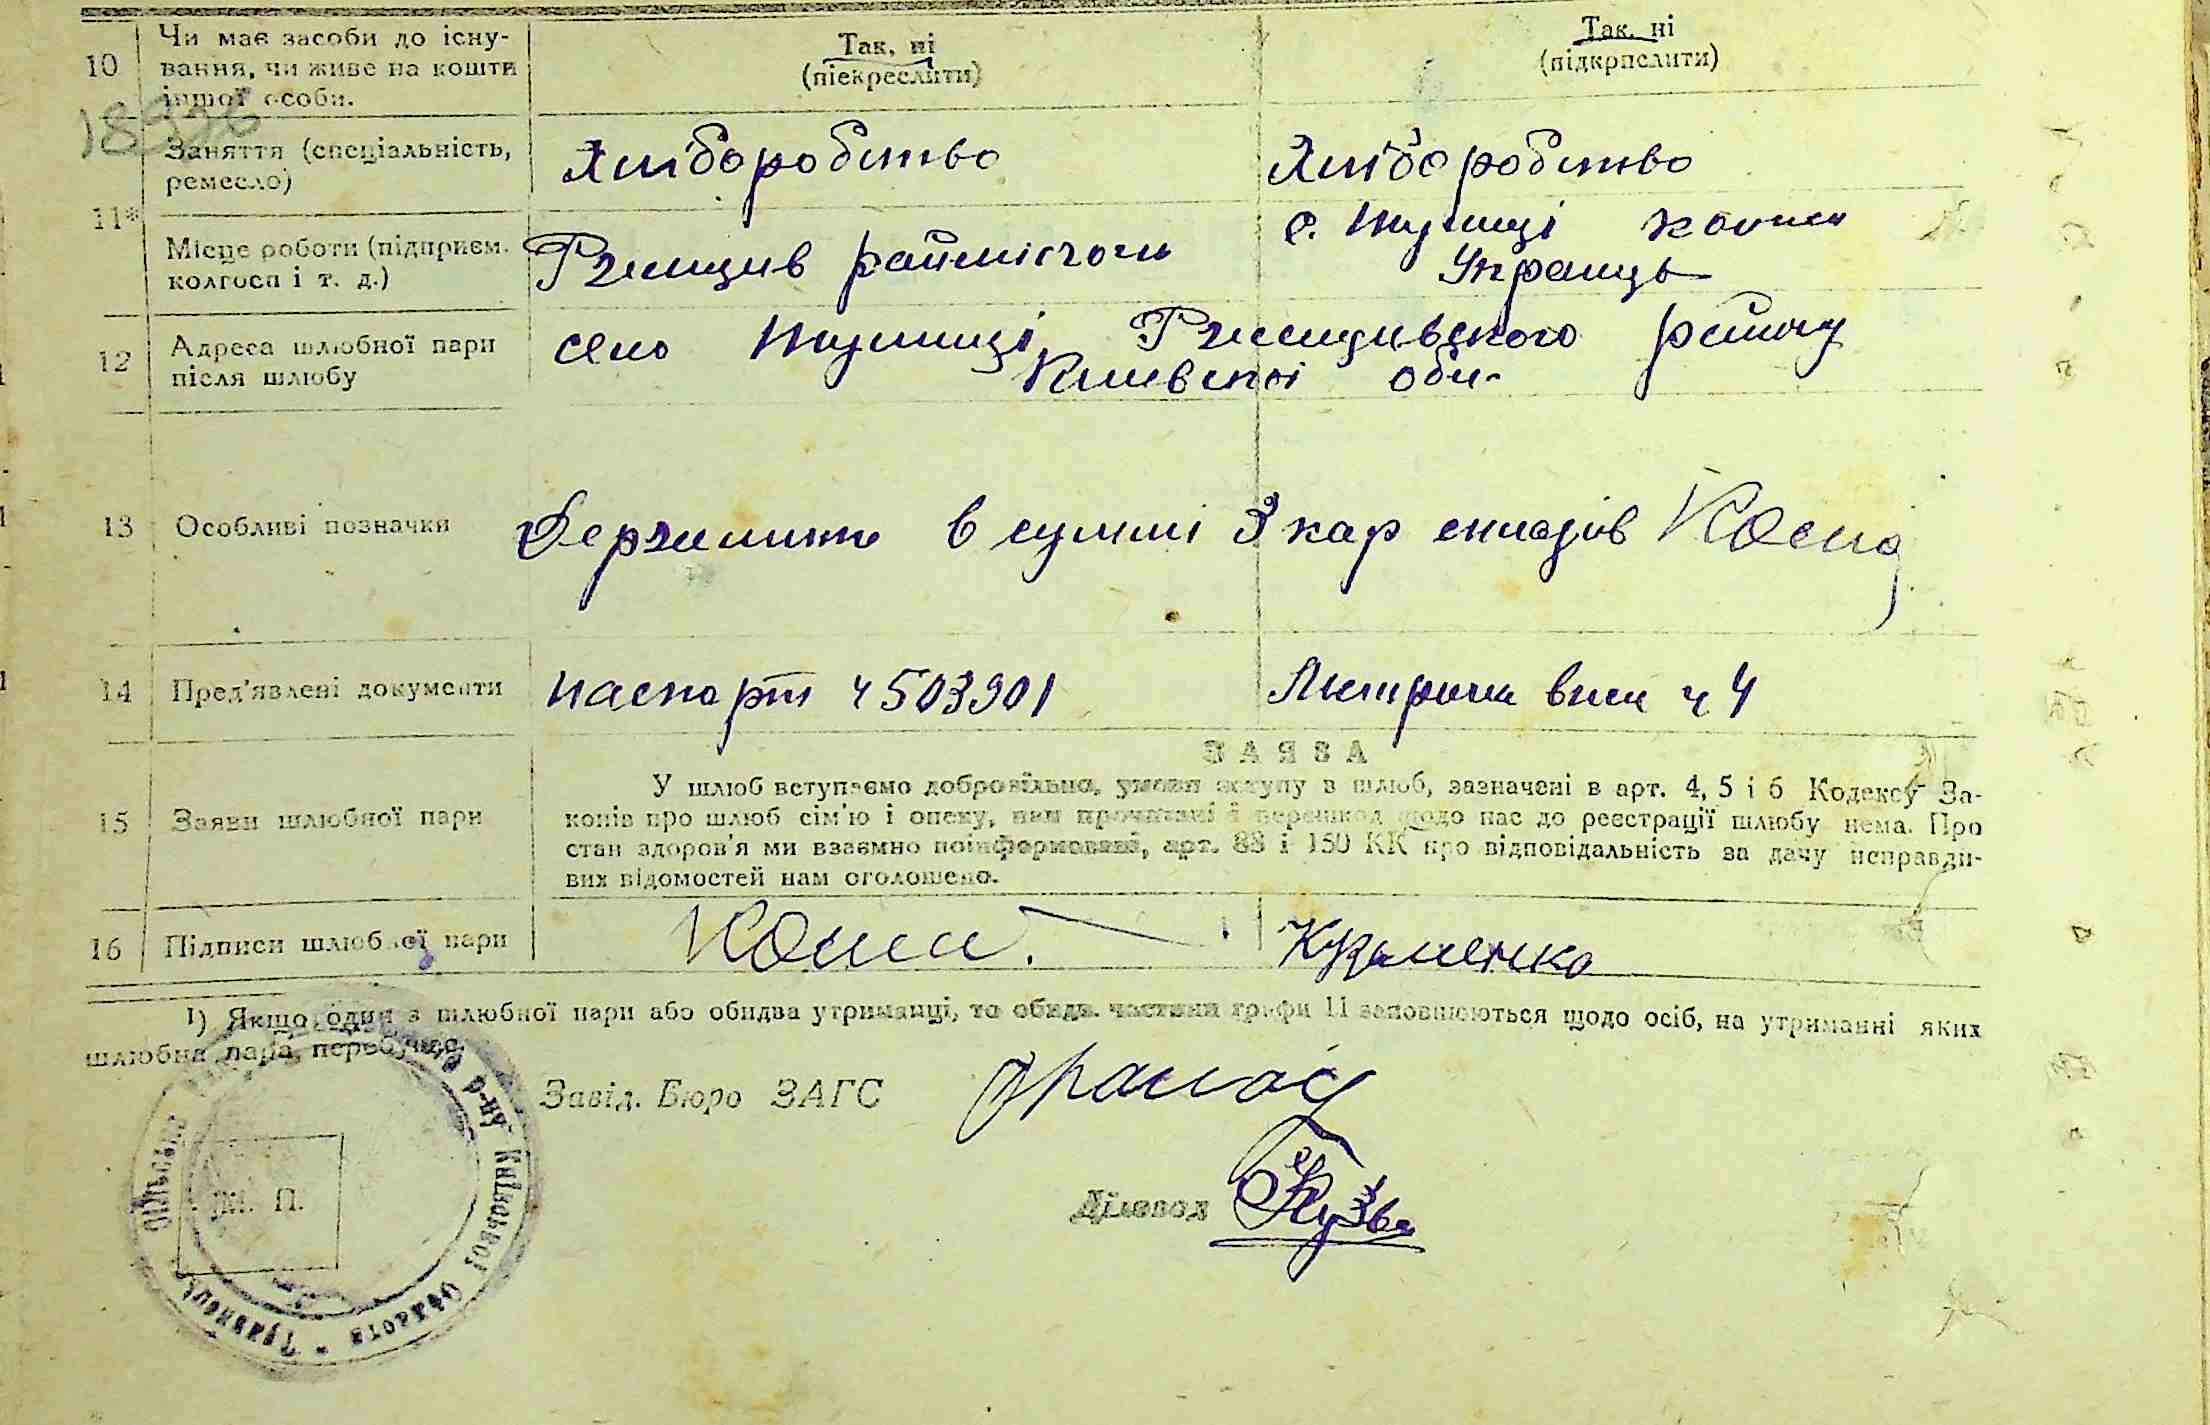 10
Чи має засоби до існу-
вання, чи живе на кошти
іншої особи.
Так, ні
(піекреслити)
Так, ні
(підкрпслити)
18926
11*
Заняття (спеціальність,
ремесло)
Хліборобство
Хліборобство
Місце роботи (підприєм.
колгосп і т. д.)
Ржищив
с.
Украінць
12
Адреса шлюбної пари
після шлюбу
село Ржищивского району
Киівскоі обл.
13
Особливі позначки
Держмито в суммі 3 кар
14
Пред'явлені документи
паспорт ч 503901
Метрична вип ч 4
15
Заяви шлюбної пари
ЗАЯВА
У шлюб вступаємо добровільно, умови вступу в шлюб, зазначені в арт. 4, 5 і 6 Кодексу За-
конів про шлюб сім'ю і опеку, нам прочитані і перешкод щодо нас до реєстрації шлюбу нема. Про
стан здоров'я ми взаємно поінформовані, арт. 88 і 150 КК про відповідальність за дачу неправди-
вих відомостей нам оголошено.
16
Підписи шлюбної пари
Кузьменко
1) Якщо один з шлюбної пари або обидва утриманці, то обидві частини графи 11 заповнюються щодо осіб, на утриманні яких
шлюбна пара перебуває.
Завід. Бюро ЗАГС
Діловод
М. П.
р-ну Київської